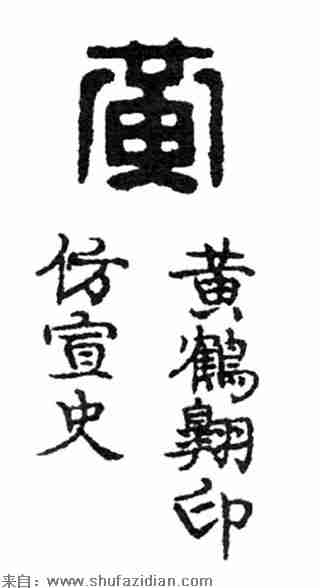 黄
黄鶴翱印
仿宣史
来自：www.shufazidian.com